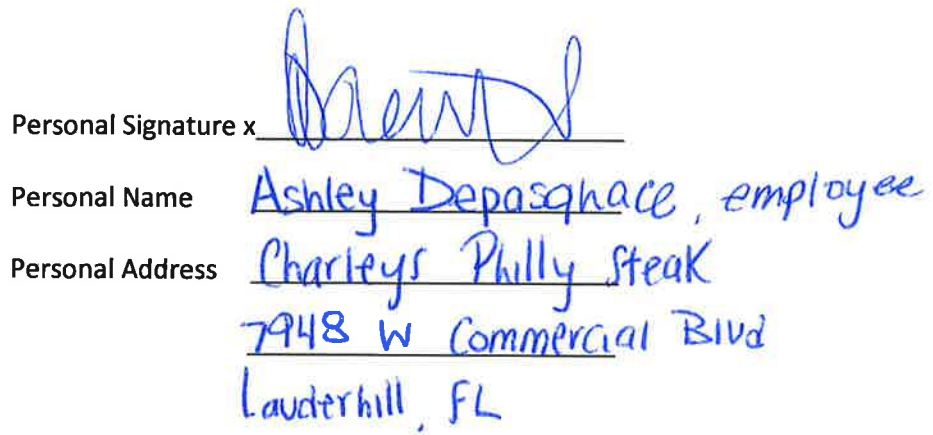 Personal Signature x
Personal Name Ashley Depasqhace, employee
Personal Address Charleys Philly Steak
7948 W Commercial Blvd
Lauderhill, FL